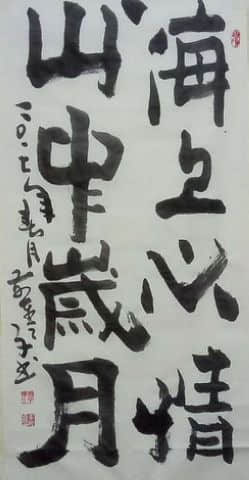 海上心情
山中歲月
二〇一七年春月